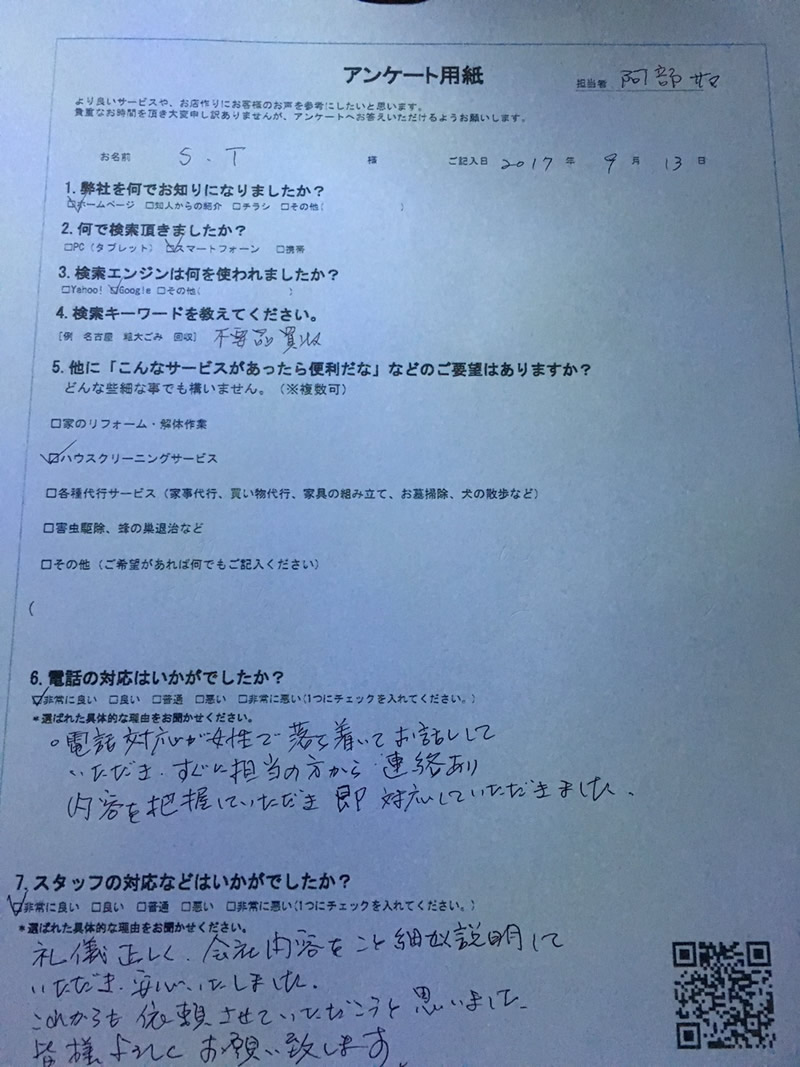 アンケート用紙
担当者 阿部
より良いサービスや、お店作りにお客様のお声を参考にしたいと思います。
貴重なお時間を頂き大変申し訳ありませんが、アンケートへお答えいただけるようお願いします。
お名前 S.T 様 ご記入日 2017 年 9 月 13 日
1. 弊社を何でお知りになりましたか?
☑ホームページ □知人からの紹介 □チラシ □その他( )
2. 何で検索頂きましたか?
□PC(タブレット) ☑スマートフォーン □携帯
3. 検索エンジンは何を使われましたか?
□Yahoo! ☑Google □その他( )
4. 検索キーワードを教えてください。
[例 名古屋 粗大ごみ 回収] 不要品買収
5. 他に「こんなサービスがあったら便利だな」などのご要望はありますか?
どんな些細な事でも構いません。(※複数可)
□家のリフォーム・解体作業
☑ハウスクリーニングサービス
□各種代行サービス(家事代行、買い物代行、家具の組み立て、お墓掃除、犬の散歩など)
□害虫駆除、蜂の巣退治など
□その他(ご希望があれば何でもご記入ください)
(
6. 電話の対応はいかがでしたか?
☑非常に良い □良い □普通 □悪い □非常に悪い(1つにチェックを入れてください。)
*選ばれた具体的な理由をお聞かせください。
。電話対応が女性で落ち着いてお話しして
いただき、すぐに担当の方から連絡あり
内容を把握していただき即対応していただきました。
7. スタッフの対応などはいかがでしたか?
☑非常に良い □良い □普通 □悪い □非常に悪い(1つにチェックを入れてください。)
*選ばれた具体的な理由をお聞かせください。
礼儀正しく、会社内容をこと細かく説明して
いただき、安心いたしました。
これからも依頼させていただこうと思いました
皆様よろしくお願い致します。